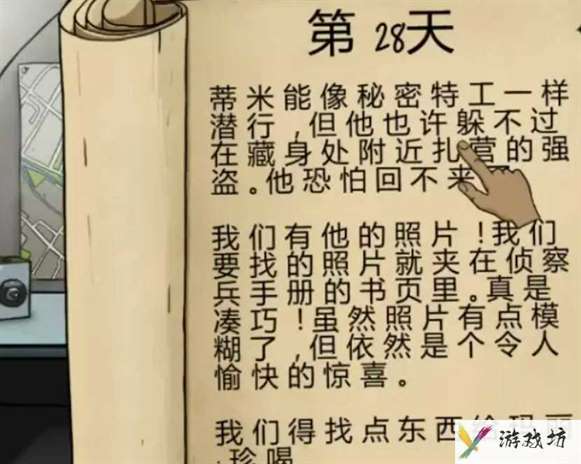 第28天
蒂米能像秘密特工一样
潜行,但他也许躲不过
在藏身处附近扎营的强
盗。他恐怕回不来
我们有他的照片!我们
要找的照片就夹在侦察
兵手册的书页里。真是
凑巧!虽然照片有点模
糊了,但依然是个令人
愉快的惊喜。
我们得找点东西给玛丽
,珍喝
游戏坊